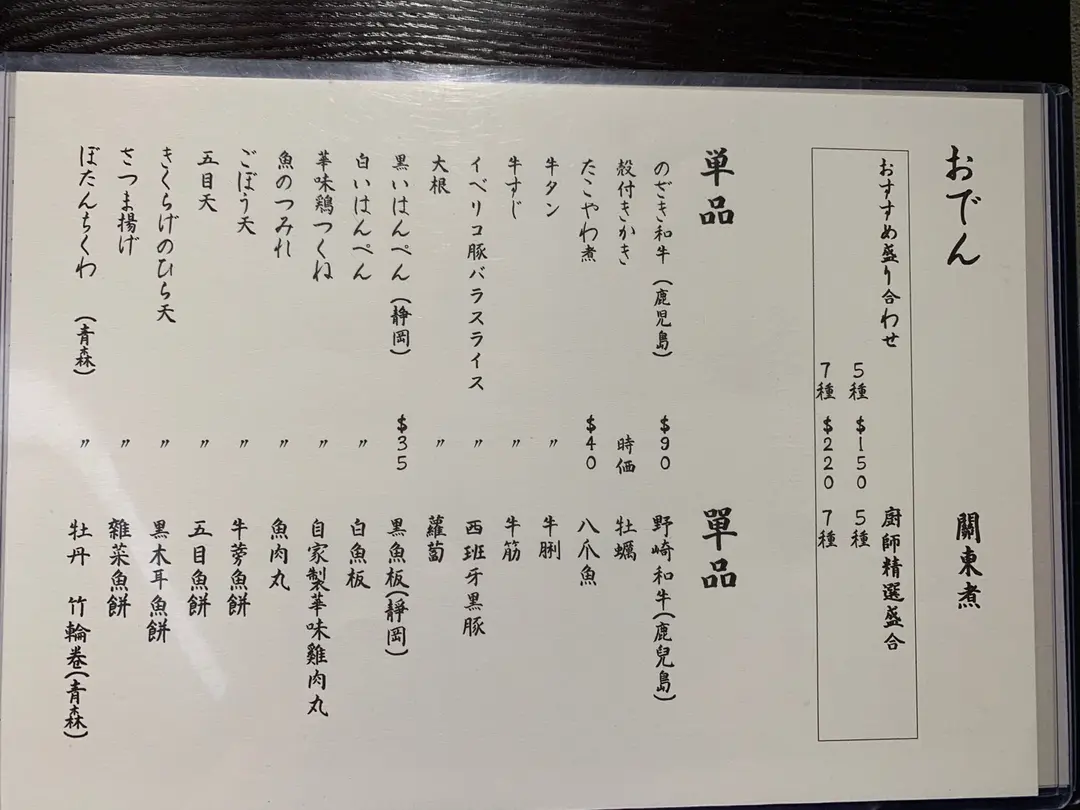 おでん 關東煮
おすすめ盛り合わせ 廚師精選盛合
5種 $150 5種
7種 $220 7種
単品 單品
のざき和牛(鹿児島) $90 野崎和牛(鹿兒島)
殻付きかき 時価 牡蠣
たこやわ煮 $40 八爪魚
牛タン 〃 牛脷
牛すじ 〃 牛筋
イベリコ豚バラスライス 〃 西班牙黒豚
大根 〃 蘿蔔
黒いはんぺん(静岡) $35 黑魚板(靜岡)
白いはんぺん 〃 白魚板
華味鶏つくね 〃 自家製華味雞肉丸
魚のつみれ 〃 魚肉丸
ごぼう天 〃 牛蒡魚餅
五目天 〃 五目魚餅
きくらげのひら天 〃 黑木耳魚餅
さつま揚げ 〃 雜菜魚餅
ぼたんちくわ (青森) 〃 牡丹 竹輪卷(青森)